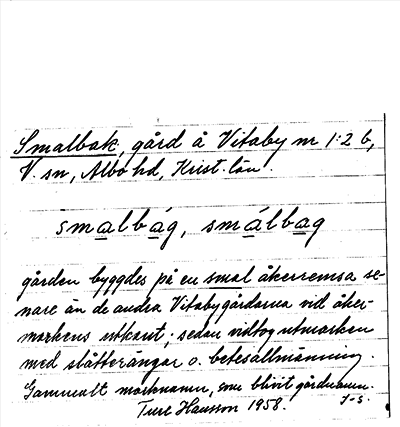 Smalbak, gård å Vitaby nr 1:2 b,
V. sn, Albo hd, Krist. län.
smalbág, smálbag
gården byggdes på en smal åkerremsa se-
nare än de andra Vitabygårdarna vid åker-
markens utkant. sedan vidtog utmarken
med slåtterängar o. betesallmänning.
Gammalt marknamn, som blivit gårdnamn.
Ture Hansson 1958. J-s.